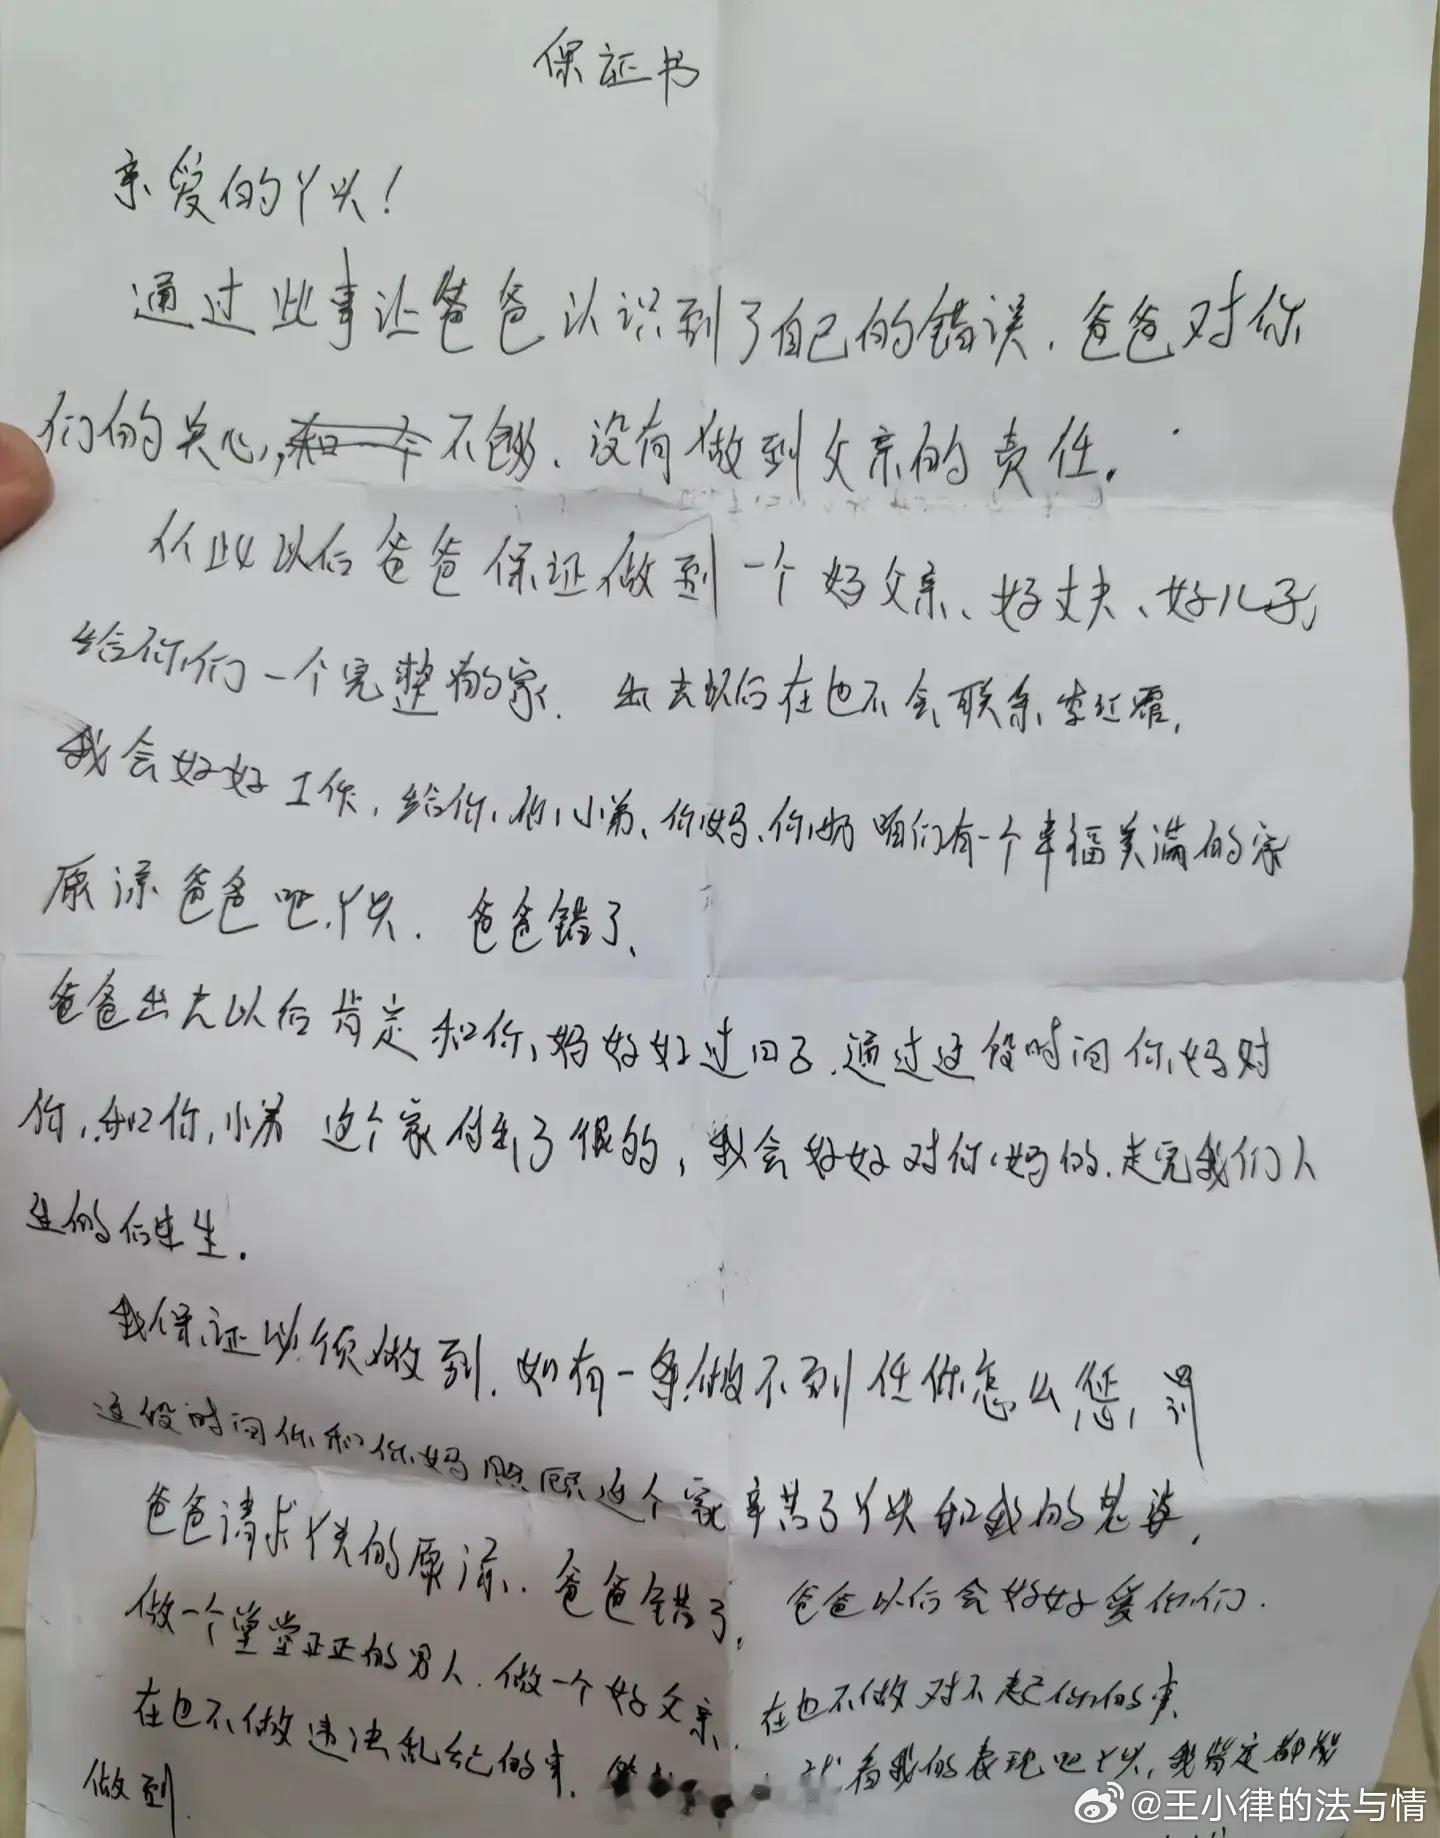 保证书
亲爱的丫头！
通过此事让爸爸认识到了自己的错误．爸爸对你
们的关心，不够．没有做到父亲的责任．
从此以后爸爸保证做到一个好父亲、好丈夫、好儿子，
给你们一个完整的家．出去以后在也不会联系李红霞，
我会好好工作，给你，你小弟、你妈、你奶咱们有一个幸福美满的家
原谅爸爸吧丫头．爸爸错了、
爸爸出去以后肯定和你妈好好过日子．通过这段时间你妈对
你，和你小弟 这个家付出了很的，我会好好对你妈的．走完我们人
生的后半生．
我保证必须做到．如有一条做不到任你怎么惩罚
这段时间你和你妈照顾这个家辛苦了丫头和我的老婆，
爸爸请求丫头的原谅．爸爸错了，爸爸以后会好好爱你们．
做一个堂堂正正的男人．做一个好父亲．在也不做对不起你们的事
在也不做违法乱纪的事．看我的表现吧丫头，我肯定都能
做到．
@王小律的法与情